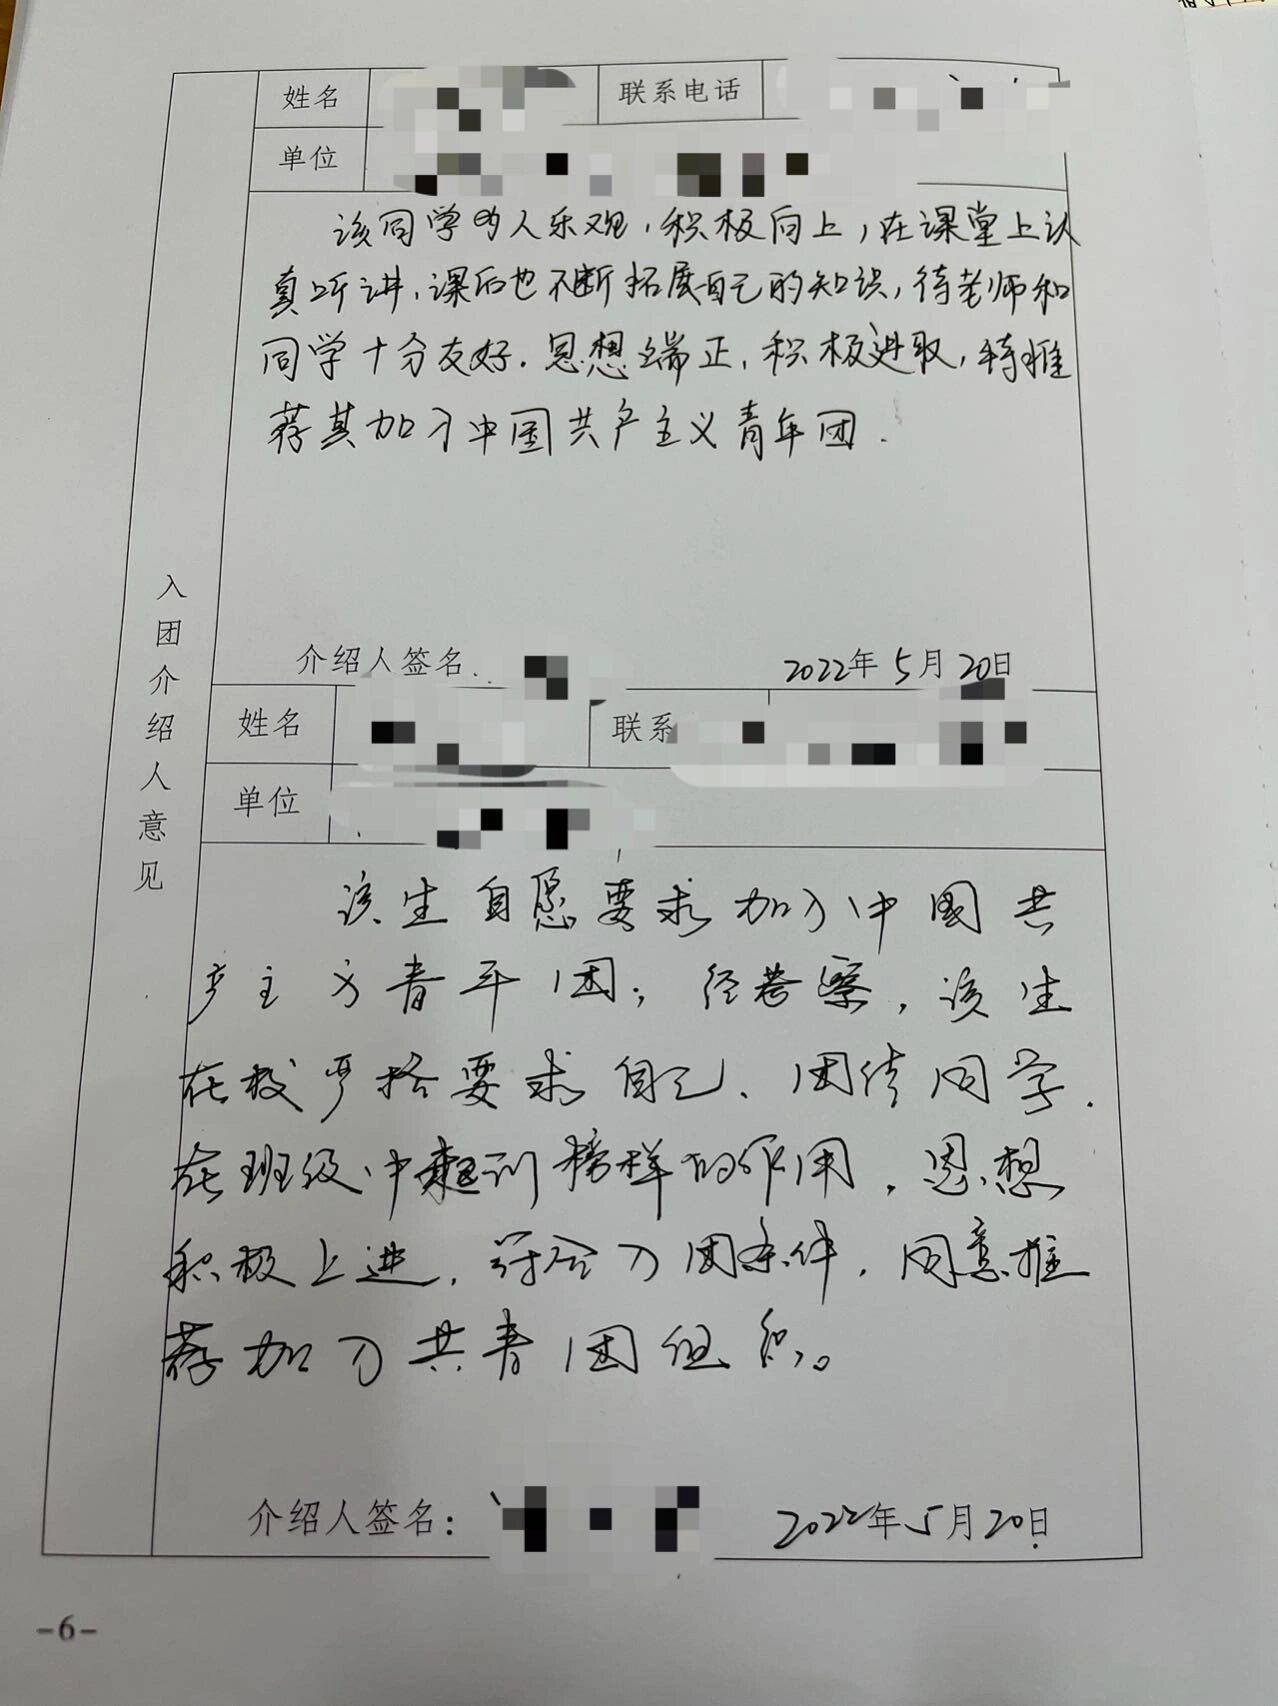 姓名 联系电话
单位
该同学为人乐观，积极向上，在课堂上认
真听讲，课后也不断拓展自己的知识，待老师和
同学十分友好．思想端正，积极进取，特推
荐其加入中国共产主义青年团．
介绍人签名 2022年5月20日
入团介绍人意见
姓名 联系
单位
该生自愿要求加入中国共
产主义青年团；经考察，该生
在校严格要求自己、团结同学．
在班级中起到榜样的作用，思想
积极上进，符合入团条件，同意推
荐加入共青团组织。
介绍人签名： 2022年5月20日
-6-